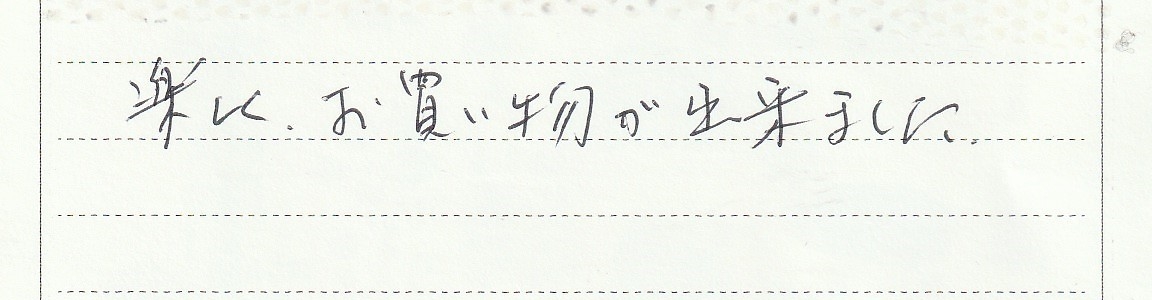 楽しく、お買い物が出来ました。